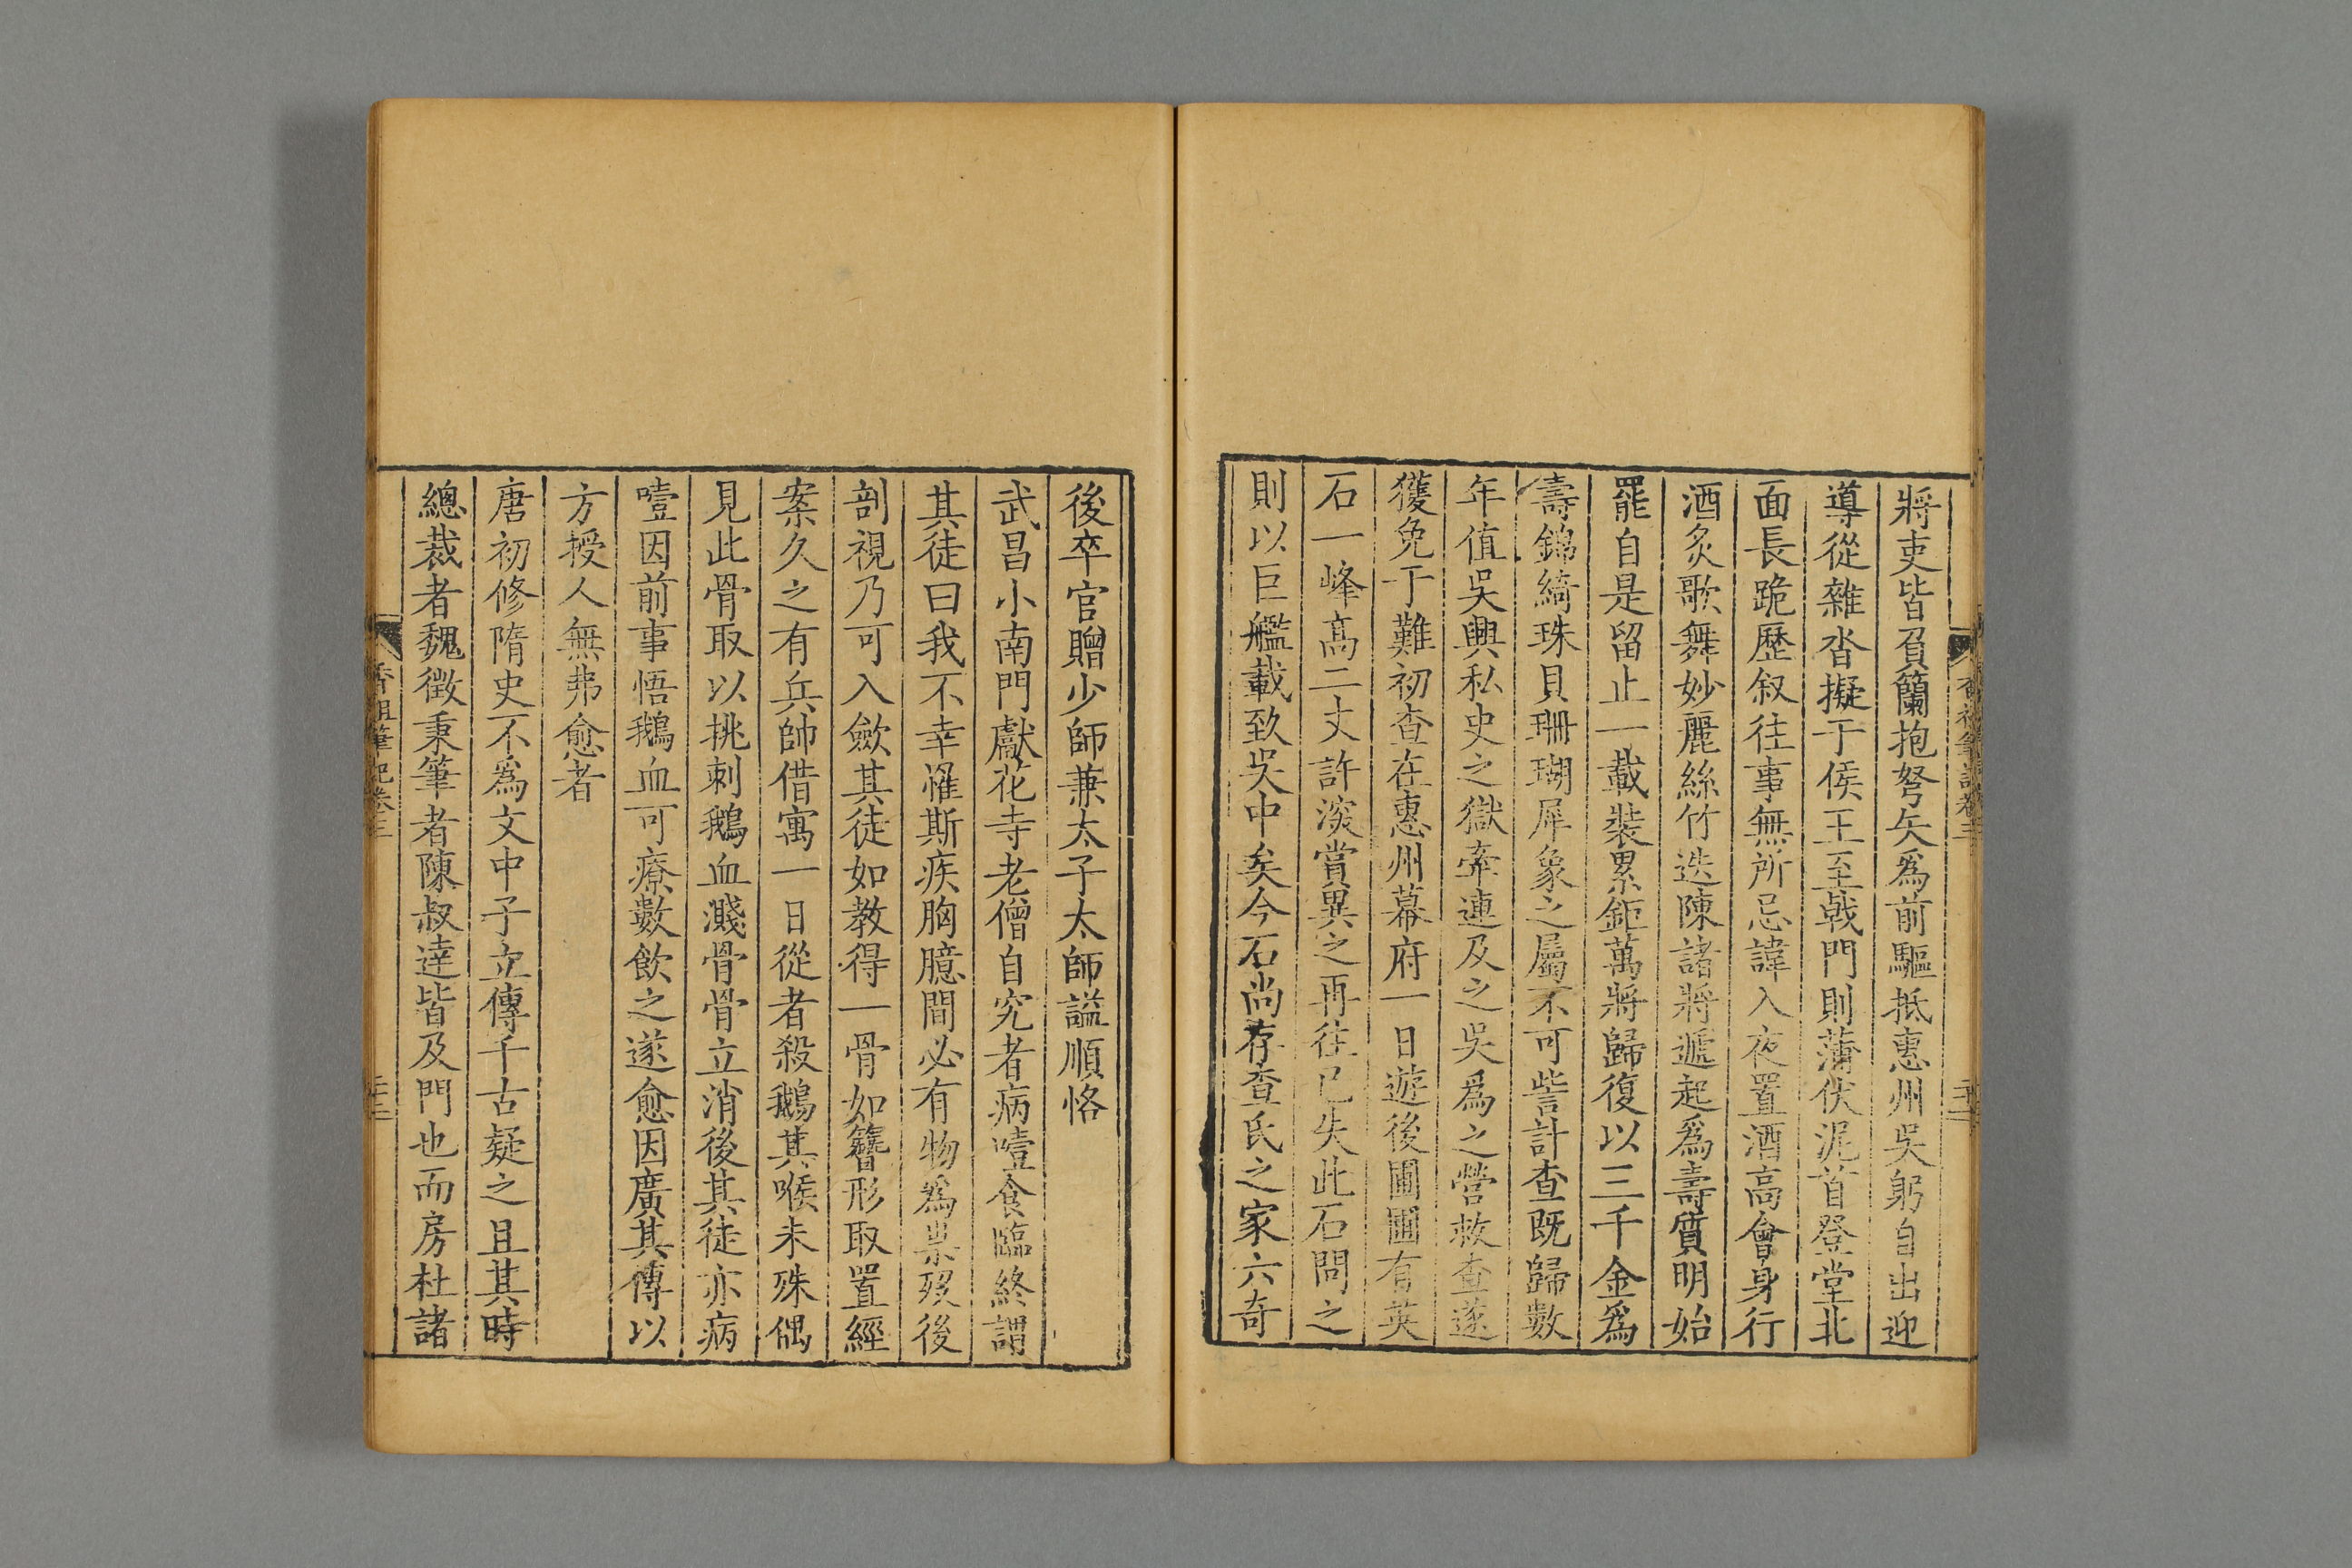 將吏皆負籣抱弩矢爲前驅抵惠州吳躬自出迎
導從雜沓擬于侯王至戟門則蒲伏泥首登堂北
面長跪歷叙往事無所忌諱入夜置酒高會身行
酒炙歌舞妙麗絲竹迭陳諸將遞起爲壽質明始
罷自是留止一載裝累鉅萬將歸復以三千金爲
壽錦綺珠貝珊瑚犀象之屬不可訾計查既歸數
年值吳興私史之獄牽連及之吳爲之營救查遂
獲免于難初查在惠州幕府一日遊後圃圃有英
石一峰高二丈許深賞異之再往已失此石問之
則以巨艦載致吳中矣今石尚存查氏之家六奇
後卒官贈少師兼太子太師諡順恪
武昌小南門獻花寺老僧自究者病噎食臨終謂
其徒曰我不幸罹斯疾胸臆間必有物爲祟歿後
剖視乃可入歛其徒如教得一骨如簪形取置經
案久之有兵帥借寓一日從者殺鵝其喉未殊偶
見此骨取以挑刺鵝血濺骨骨立消後其徒亦病
噎因前事悟鵝血可療數飲之遂愈因廣其傳以
方授人無弗愈者
唐初修隋史不爲文中子立傳千古疑之且其時
總裁者魏徵秉筆者陳叔達皆及門也而房杜諸
香祖筆記卷三